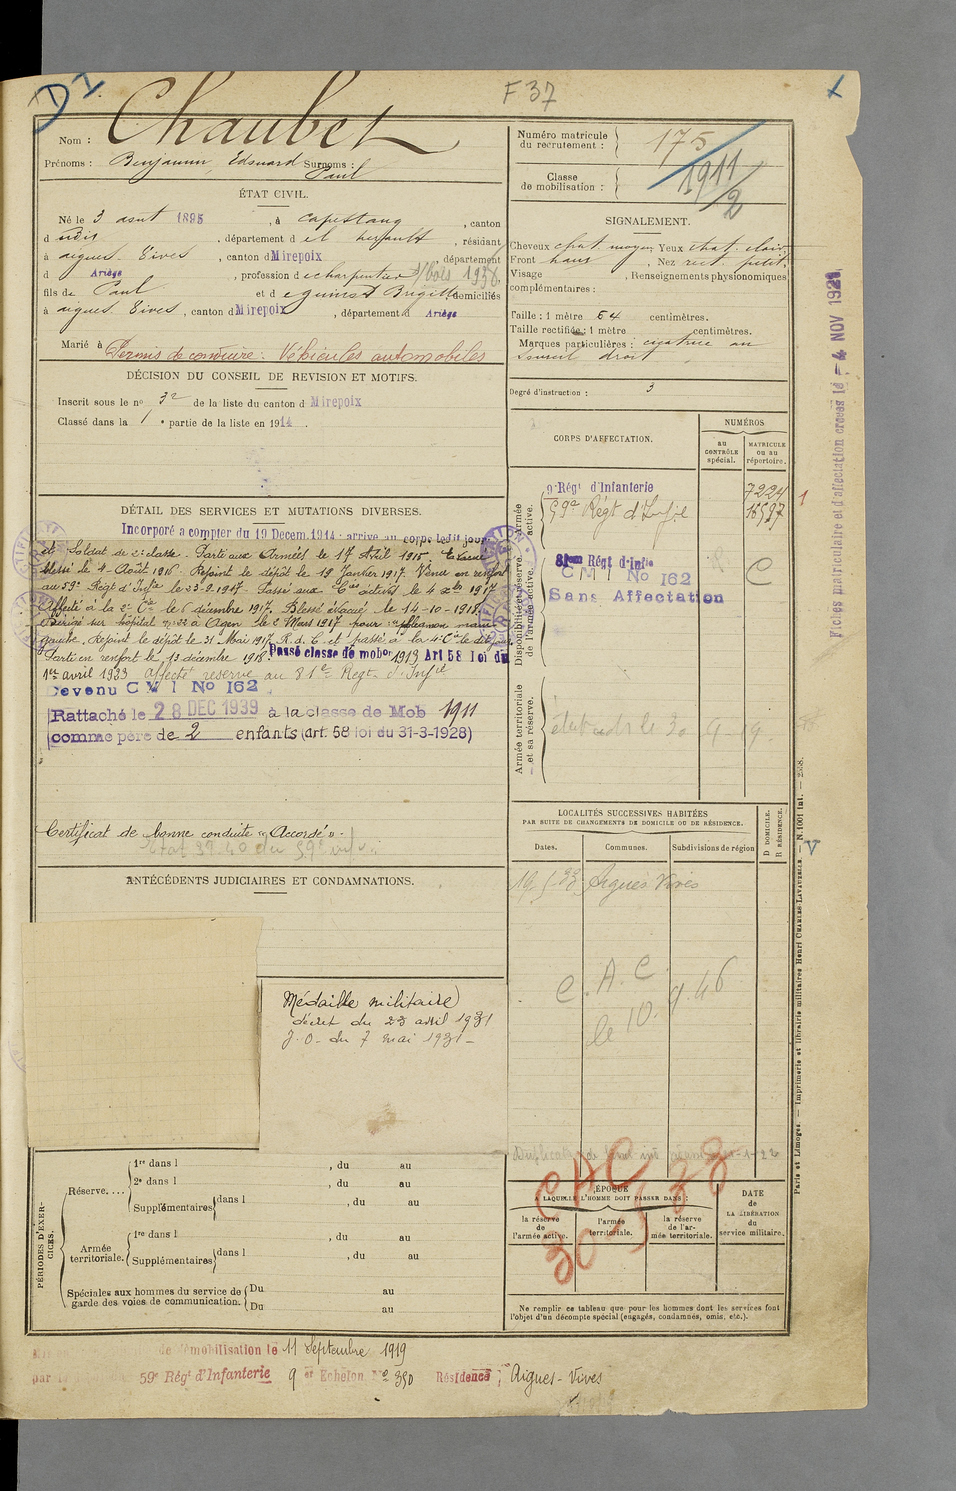 D I
F 37
Nom : Chaubet
Prénoms : Benjamin, Edouard Surnoms :
Paul
ÉTAT CIVIL.
Né le 3 août 1895, à Capestang, canton
d udis, département d el herault, résidant
à aigues. Vives, canton d Mirepoix, département
d Ariège, profession d e charpentier s/bois 1938.
fils de Paul et d e Brigitte, domiciliés
à aigues. Vives, canton d Mirepoix, département d Ariège
Marié à
Permis de conduire : Véhicules automobiles
DÉCISION DU CONSEIL DE REVISION ET MOTIFS.
Inscrit sous le no 32 de la liste du canton d Mirepoix
Classé dans la 1 e partie de la liste en 1914.
DÉTAIL DES SERVICES ET MUTATIONS DIVERSES.
Incorporé a compter du 19 Decem. 1914 : arrivé au corps ledit jour
et Soldat de 2e classe. Parti aux Armées le 17 Avril 1915. Evacué
blessé le 4 Août 1916. Rejoint le dépôt le 19 Janvier 1917. Venu en renfort
au 59e Régt d'Infie le 23-9-1917. Passé aux Cies actives le 4 xbre 1917
Affecté à la 2e Cie le 6 décembre 1917. Blessé évacué le 14-10-1918.
Dirigé sur hôpital no 22 à Agen le 2 Mars 1917 pour main
gauche. Rejoint le dépôt le 31 Mai 1917. R. d. C. et passé à la 4e Cie le dit jour.
Parti en renfort le 13 décembre 1918. Passé classe de mobon 1913 Art 58 loi du
1er avril 1923 affecté réserve au 81e Régt d'Infie
Devenu C M I No 162
Rattaché le 28 DEC 1939 à la classe de Mob 1911
comme père de 2 enfants (art. 58 loi du 31-3-1928)
Certificat de bonne conduite « Accordé ».
ANTÉCÉDENTS JUDICIAIRES ET CONDAMNATIONS.
Médaille militaire
décret du 23 avril 1931
J. O. du 7 mai 1931 -
PÉRIODES D'EXERCICES.
Réserve. . . .
1re dans l , du au
2e dans l , du au
Supplémentaires dans l , du au
Armée territoriale.
1re dans l , du au
Supplémentaires dans l , du au
Spéciales aux hommes du service de garde des voies de communication.
Du au
Du au
Numéro matricule du recrutement : 175
Classe de mobilisation : 1911/2
SIGNALEMENT.
Cheveux chat. moyen Yeux chat. clair
Front haut, Nez rect. petit.
Visage , Renseignements physionomiques
complémentaires :
Taille : 1 mètre 64 centimètres.
Taille rectifiée : 1 mètre centimètres.
Marques particulières : cicatrice au
sourcil droit
Degré d'instruction : 3
CORPS D'AFFECTATION.
NUMÉROS
au CONTRÔLE spécial.
MATRICULE ou au répertoire.
Armée active.
9e Régt d'Infanterie 7224
59e Régt d'Infie 16597
Disponibilité et réserve de l'armée active.
81eme Régt d'Infie
C M I No 162 C
Sans Affectation
Armée territoriale et sa réserve.
LOCALITÉS SUCCESSIVES HABITÉES
PAR SUITE DE CHANGEMENTS DE DOMICILE OU DE RÉSIDENCE.
Dates. Communes. Subdivisions de région
D DOMICILE.
R RÉSIDENCE.
Aigues Vives
C. A. C.
le 10. 9. 46
CAC
30-5 33
ÉPOQUE
A LAQUELLE L'HOMME DOIT PASSER DANS :
la réserve de l'armée active.
l'armée territoriale.
la réserve de l'armée territoriale.
DATE DE LA LIBÉRATION du service militaire.
Ne remplir ce tableau que pour les hommes dont les services font
l'objet d'un décompte spécial (engagés, condamnés, omis, etc.).
Fiches matriculaire et d'affectation créées le - 4 NOV 192
Paris et Limoges. — Imprimerie et librairie militaires Henri CHARLES-LAVAUZELLE. — N. 1001 int. — 2558.
de démobilisation le 11 Septembre 1919
par 59e Régt d'Infanterie 9 er Echelon No 390 Résidence : Aigues-Vives